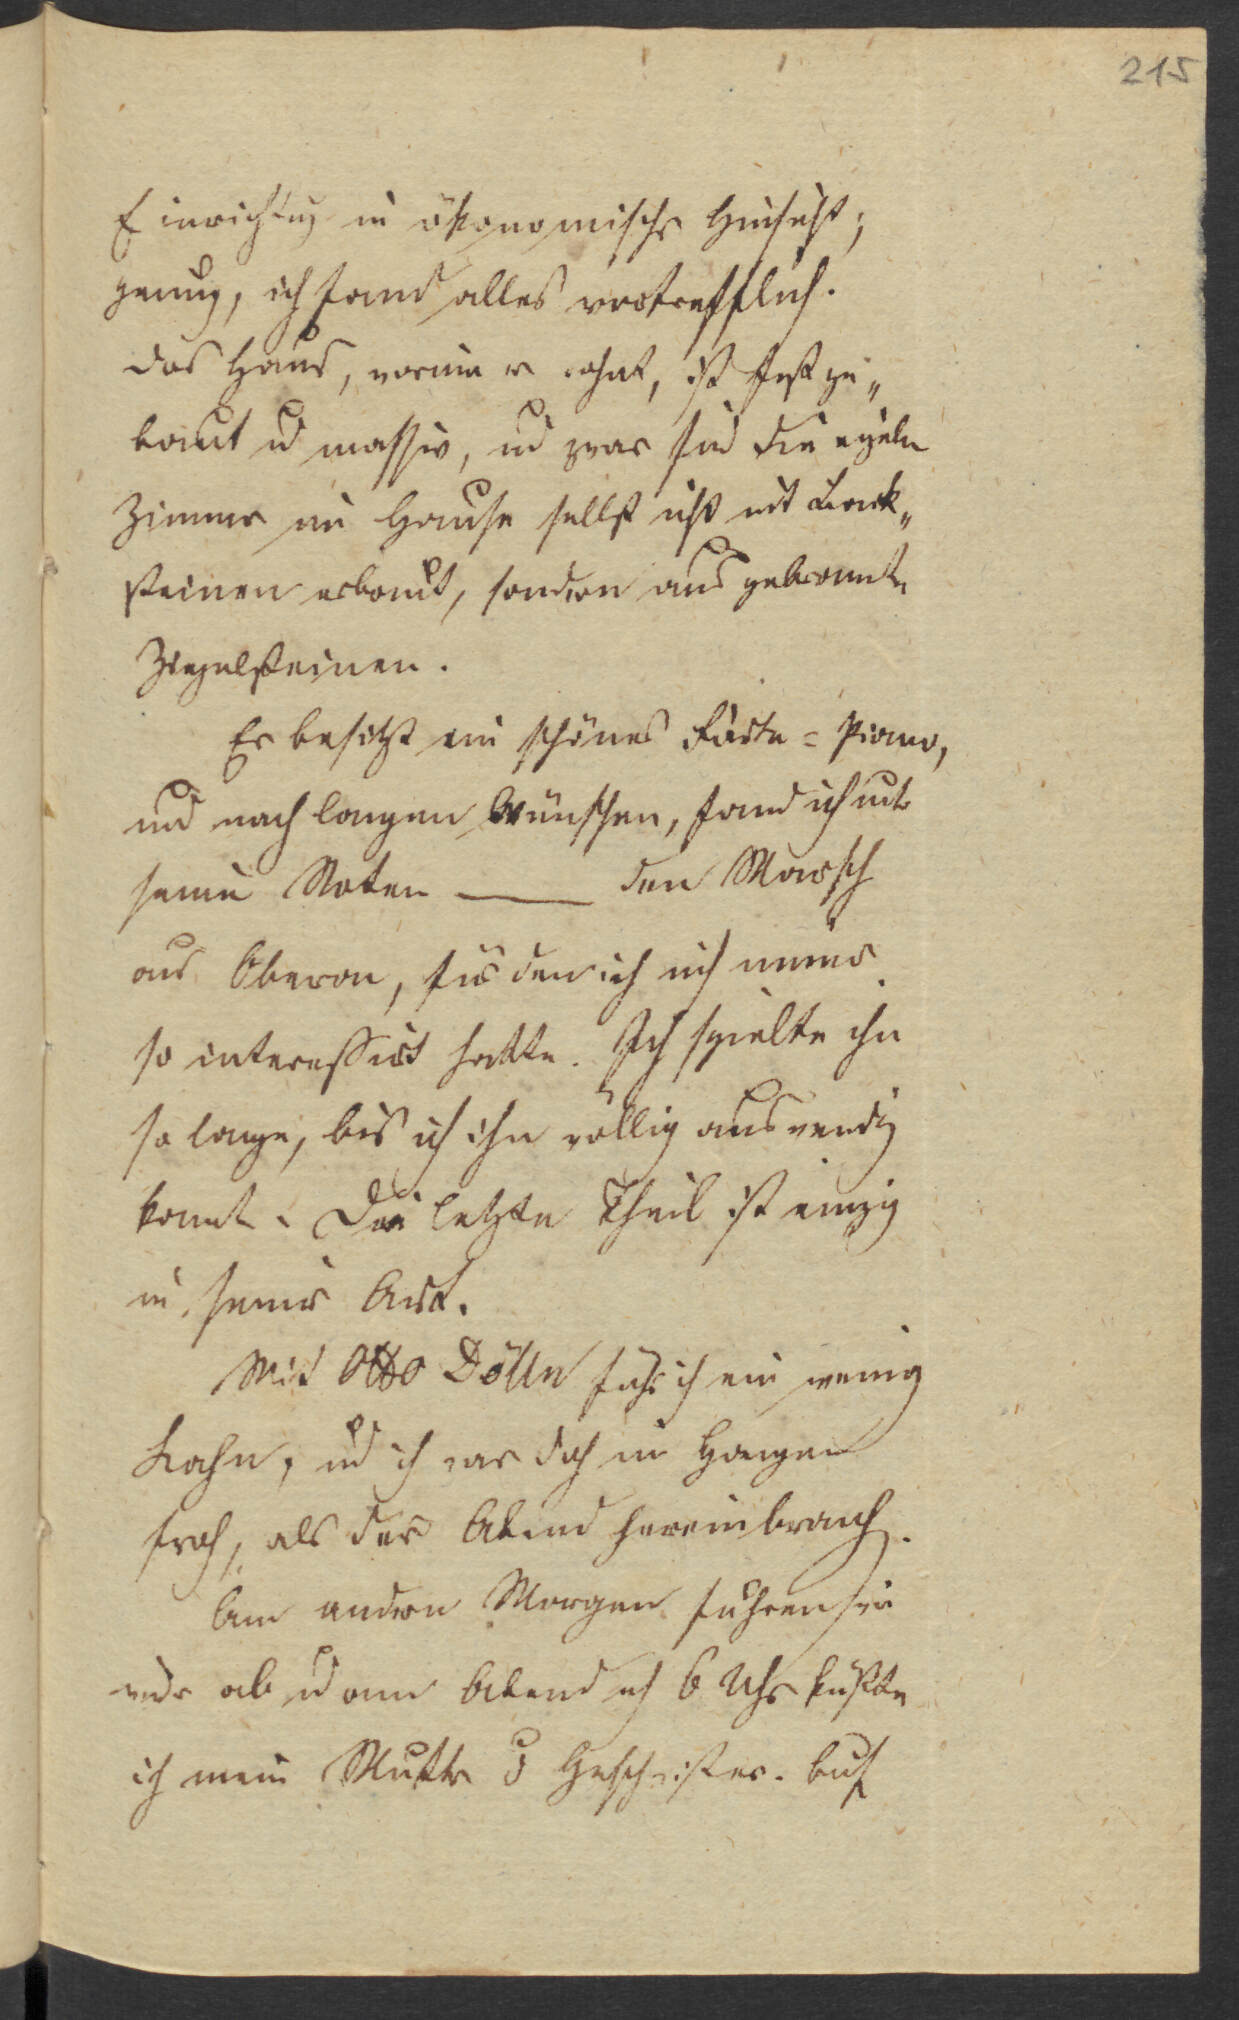 215
Einrichtung in ökonomischer Hinsicht;
genug, ich fand alles vortrefflich.
Das Haus, worin er wohnt, ist fest ge„
baut und massiv, und zwar sind die
Zimmer im Hause selbst nicht mit Back„
steinen erbaut, sondern aus gebrannten
Ziegelsteinen.
Er besitzt ein schönes Forte=Piano,
und nach langem Wünschen, fand ich unter
seinen Noten —— den Marsch
aus Oberon, für den ich mich immer
so interessirt hatte. Ich spielte ihn
so lange, bis ich ihn völlig auswendig
konnte. Der letzte Theil ist einzig
in seiner Art.
Mit Otto Dölln fuhr ich ein wenig
Kahn, und ich war doch im Ganzen
froh, als der Abend hereinbrach.
Am andern Morgen fuhren wir
wieder ab und am Abend nach 6 Uhr küßte
ich meine Mutter u Geschwister. Auf